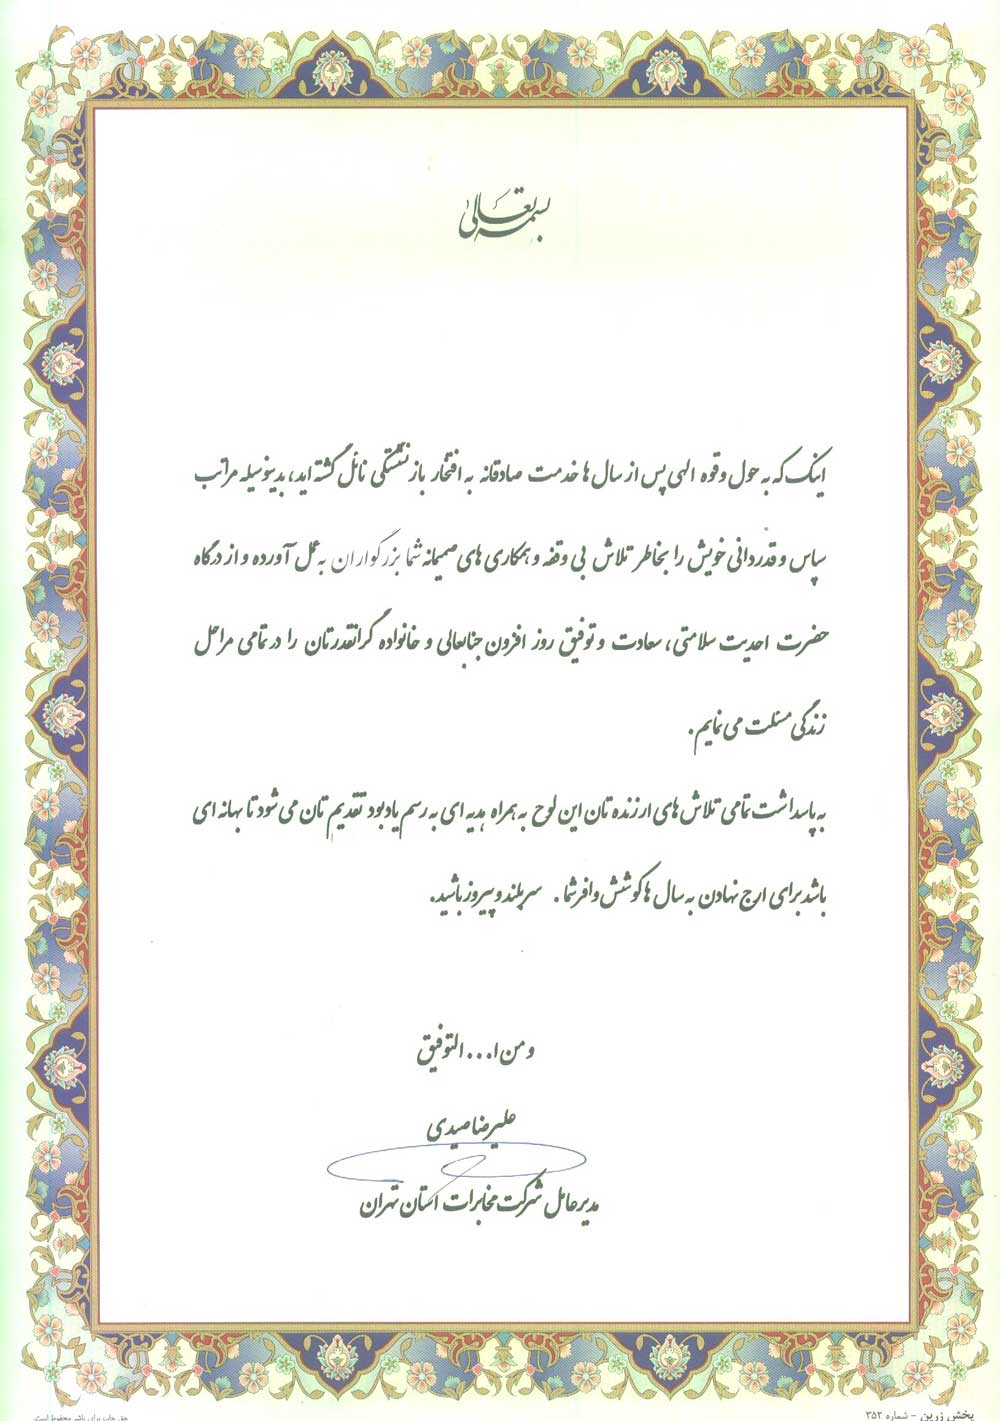 بسمه تعالی
اینک که به حول و قوه الهی پس از سال ها خدمت صادقانه به افتخار بازنشستگی نائل گشته اید، بدینوسیله مراتب
سپاس و قدردانی خویش را بخاطر تلاش بی وقفه و همکاری های صمیمانه شما بزرگواران به عمل آورده و از درگاه
حضرت احدیت سلامتی، سعادت و توفیق روز افزون جنابعالی و خانواده گرانقدرتان را در تمامی مراحل
زندگی مسئلت می نمایم.
به پاسداشت تمامی تلاش های ارزنده تان این لوح به همراه هدیه ای به رسم یادبود تقدیم تان می شود تا بهانه ای
باشد برای ارج نهادن به سال ها کوشش وافر شما. سربلند و پیروز باشید.
و من ا... التوفیق
علیرضا صیدی
مدیر عامل شرکت مخابرات استان تهران
پخش زرین - شماره ۳۵۲
حق چاپ برای ناشر محفوظ است.